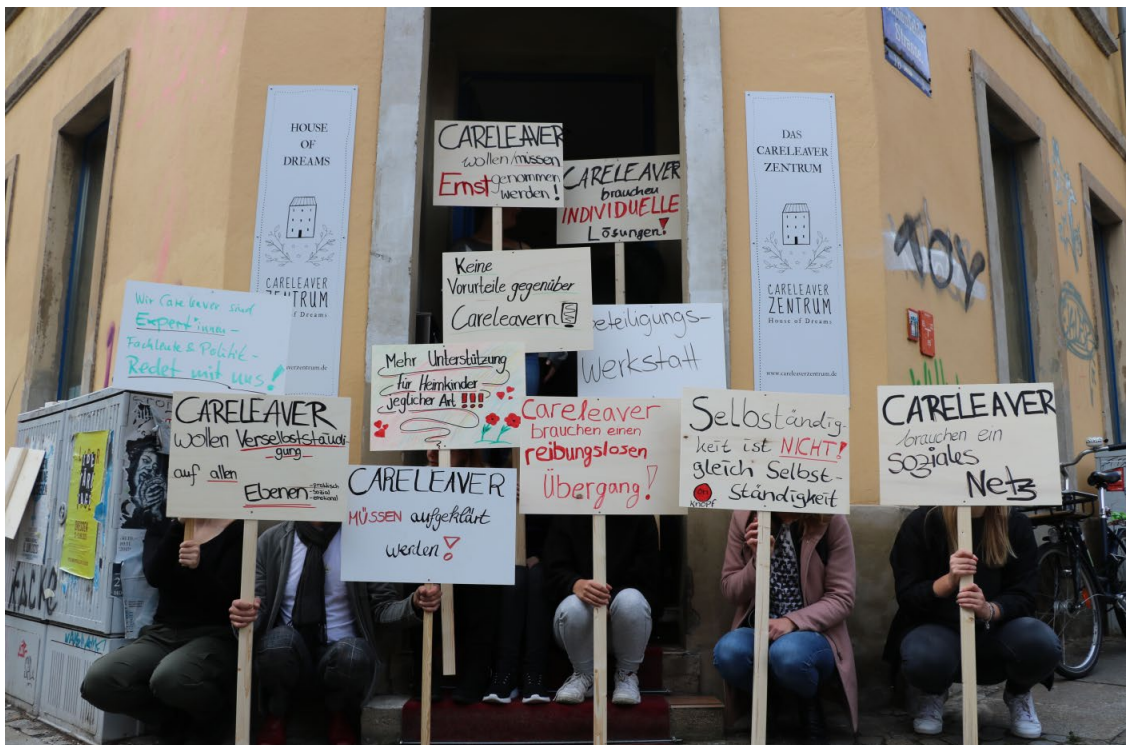 HOUSE
OF
DREAMS
CARELEAVER
ZENTRUM
House of Dreams
DAS
CARELEAVER
ZENTRUM
CARELEAVER
ZENTRUM
House of Dreams
www.careleaverzentrum.de
Strasse
CARELEAVER
wollen/müssen
Ernst genommen
werden!
CARELEAVER
brauchen
INDIVIDUELLE
Lösungen!
Keine
Vorurteile gegenüber
Careleavern!
Beteiligungs-
Werkstatt
Wir Careleaver sind
Expert*innen-
Fachleute & Politik-
Redet mit uns!
Mehr Unterstützung
für Heimkinder
jeglicher Art!!!
CARELEAVER
wollen Verselbstständi-
gung
auf allen
Ebenen -praktisch
-sozial
-emotional
CARELEAVER
MÜSSEN aufgeklärt
werden!
Careleaver
brauchen einen
reibungslosen
Übergang!
Selbständig-
keit ist NICHT!
gleich Selbst-
ständigkeit
KNOPF
CARELEAVER
brauchen ein
soziales
Netz
TOY